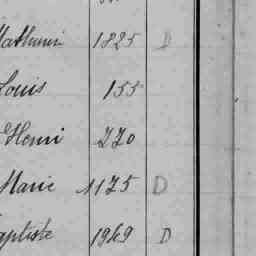 Mathurin 1825 D
Louis 155
Henri 220
Marie 1175 D
Baptiste 1969 D